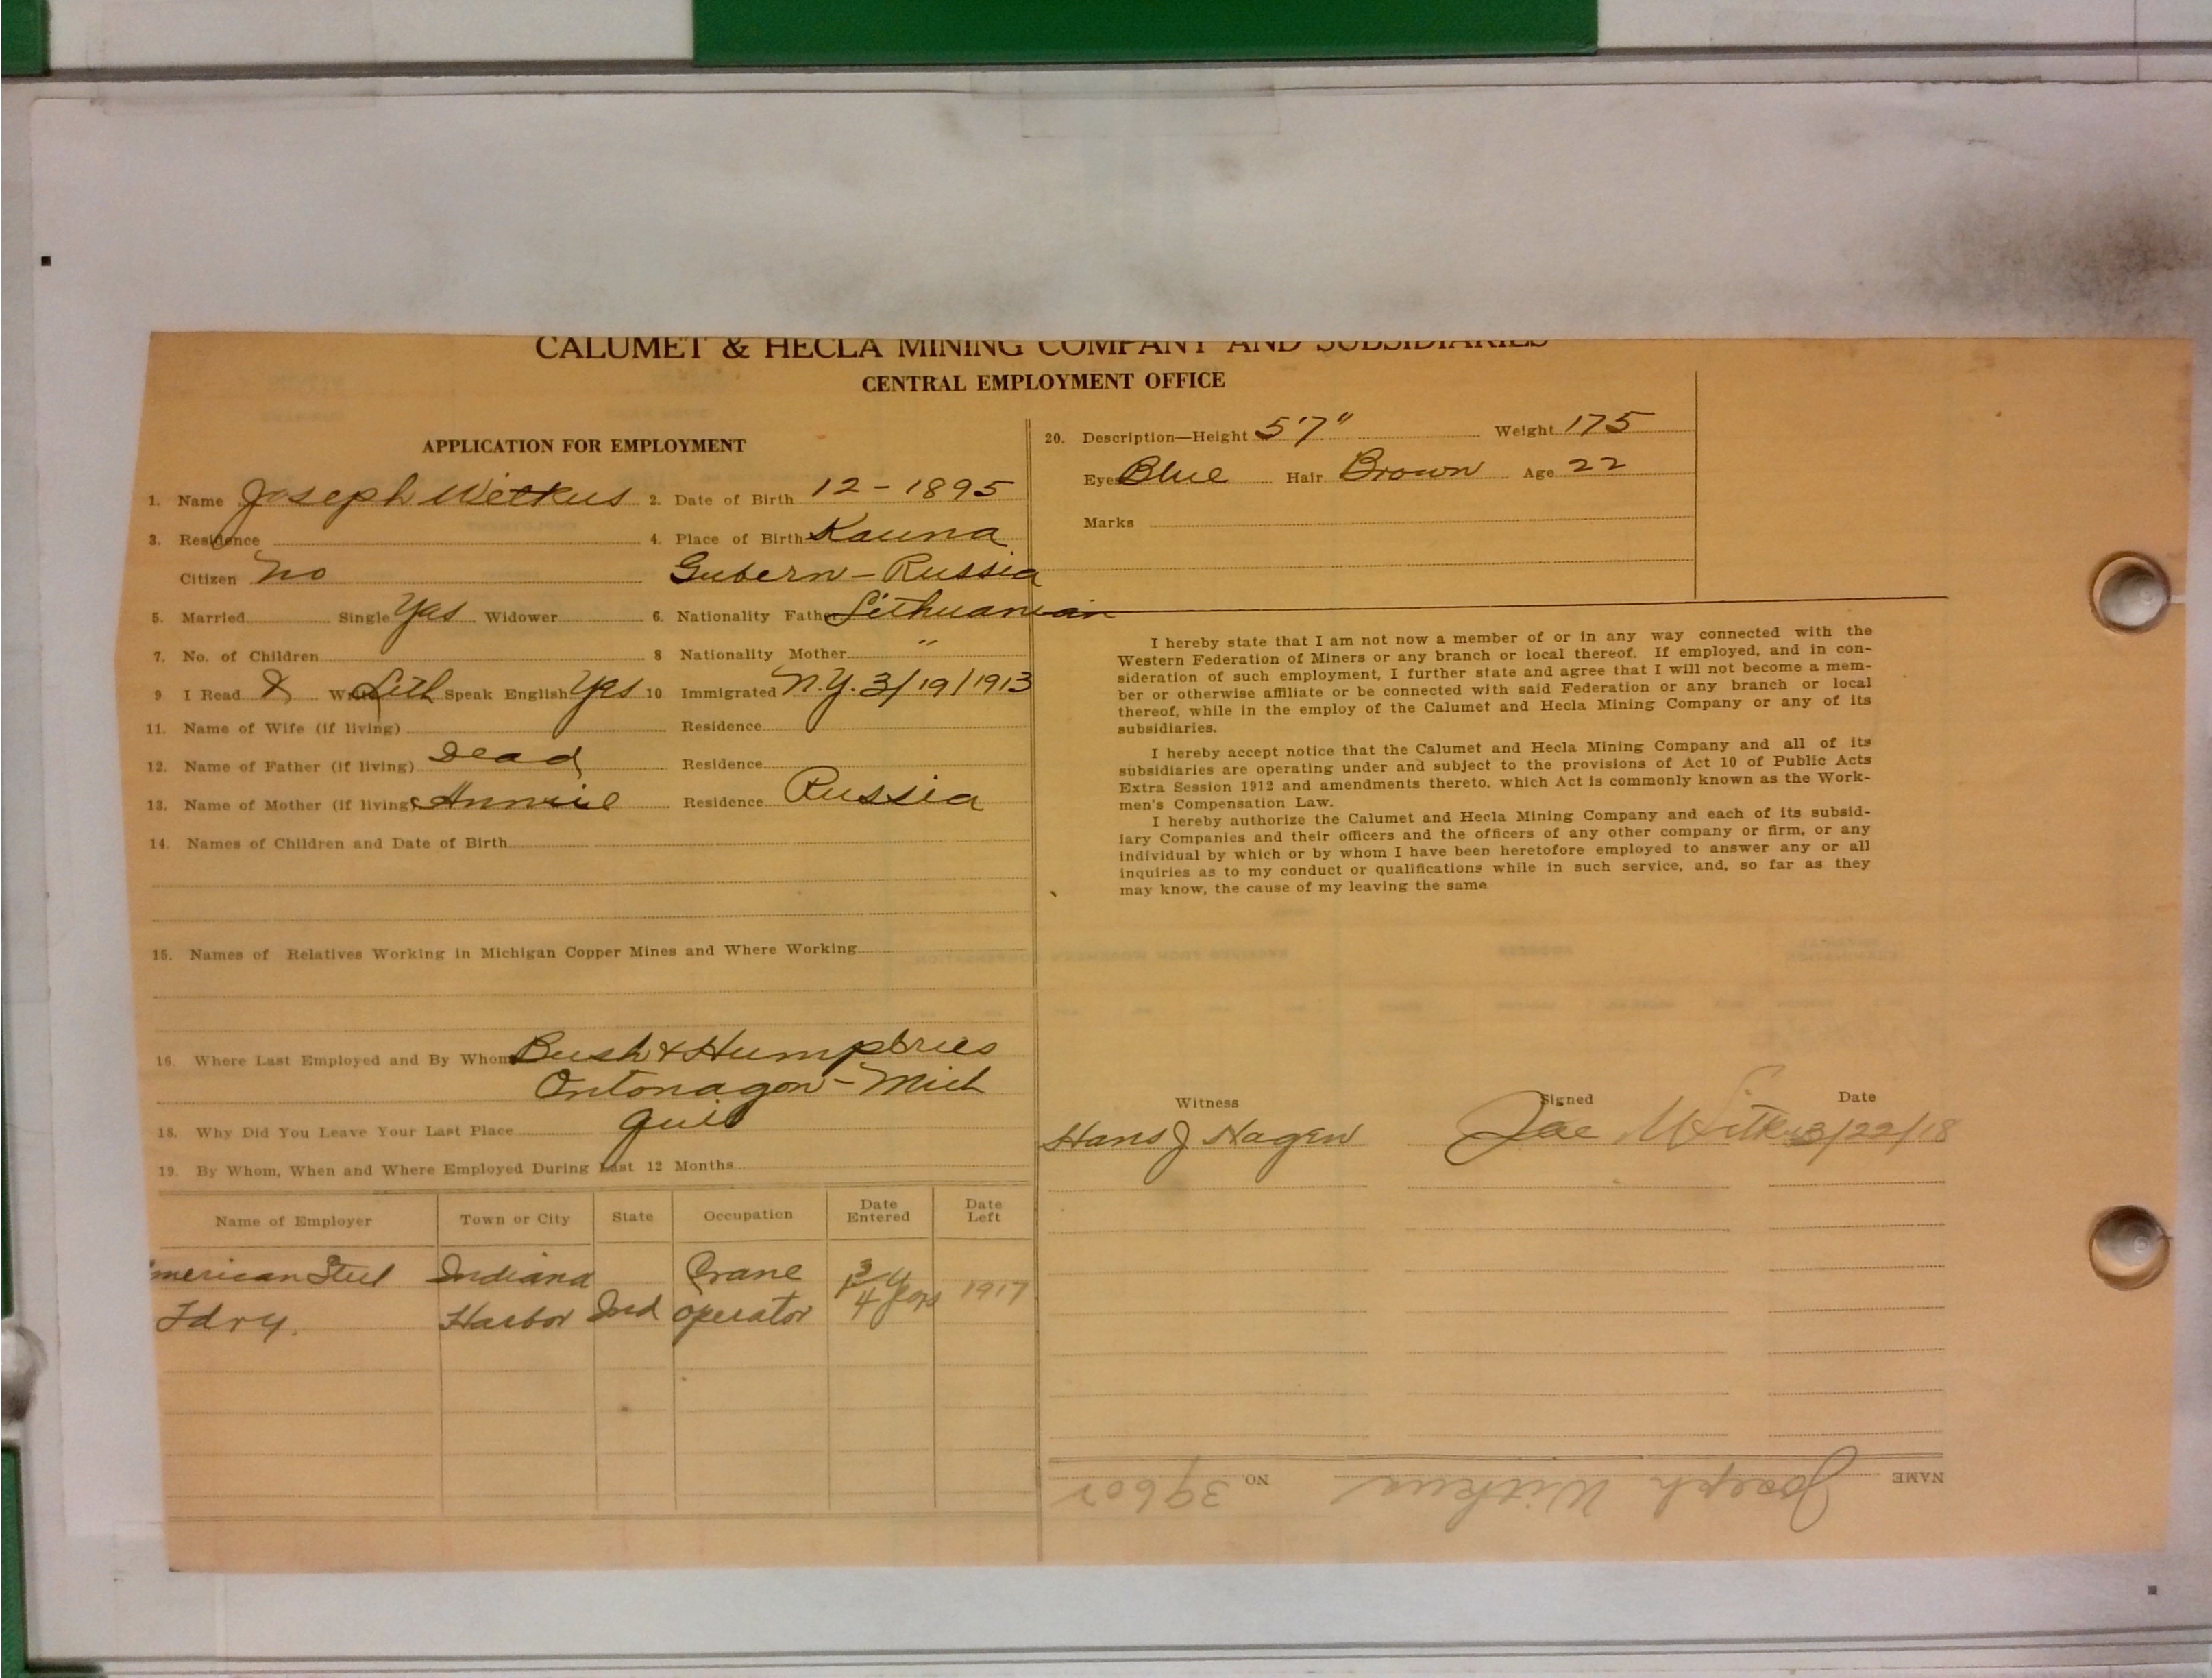 CALUMET & HECLA MINING COMPANY AND SUBSIDIARIES
CENTRAL EMPLOYMENT OFFICE
APPLICATION FOR EMPLOYMENT
1. Name Joseph Witkus 2. Date of Birth 12 - 1895
3. Residence 4. Place of Birth Kauna
Citizen No Gubern - Russia
5. Married Single Yes Widower 6. Nationality Father Lithuanian
7. No. of Children 8 Nationality Mother "
9 I Read & Write Lith Speak English Yes 10 Immigrated N.Y. 3/19/1913
11. Name of Wife (if living) Residence
12. Name of Father (if living) Dead Residence
13. Name of Mother (if living) Residence Russia
14. Names of Children and Date of Birth
15. Names of Relatives Working in Michigan Copper Mines and Where Working
16. Where Last Employed and By Whom Bush & Humphries
Ontonagon - Mich
18. Why Did You Leave Your Last Place quit
19. By Whom, When and Where Employed During Last 12 Months
Name of Employer Town or City State Occupation Date Entered Date Left
merican Steel Indiana Crane
Fdry. Harbor Ind operator 1917
20. Description—Height 5'7" Weight 175
Eyes Blue Hair Brown Age 22
Marks
I hereby state that I am not now a member of or in any way connected with the
Western Federation of Miners or any branch or local thereof. If employed, and in con-
sideration of such employment, I further state and agree that I will not become a mem-
ber or otherwise affiliate or be connected with said Federation or any branch or local
thereof, while in the employ of the Calumet and Hecla Mining Company or any of its
subsidiaries.
I hereby accept notice that the Calumet and Hecla Mining Company and all of its
subsidiaries are operating under and subject to the provisions of Act 10 of Public Acts
Extra Session 1912 and amendments thereto, which Act is commonly known as the Work-
men's Compensation Law.
I hereby authorize the Calumet and Hecla Mining Company and each of its subsid-
iary Companies and their officers and the officers of any other company or firm, or any
individual by which or by whom I have been heretofore employed to answer any or all
inquiries as to my conduct or qualifications while in such service, and, so far as they
may know, the cause of my leaving the same
Witness Signed Date
Hans J Hagen Joe Witkus 3/22/18
NAME Joseph Witkus NO